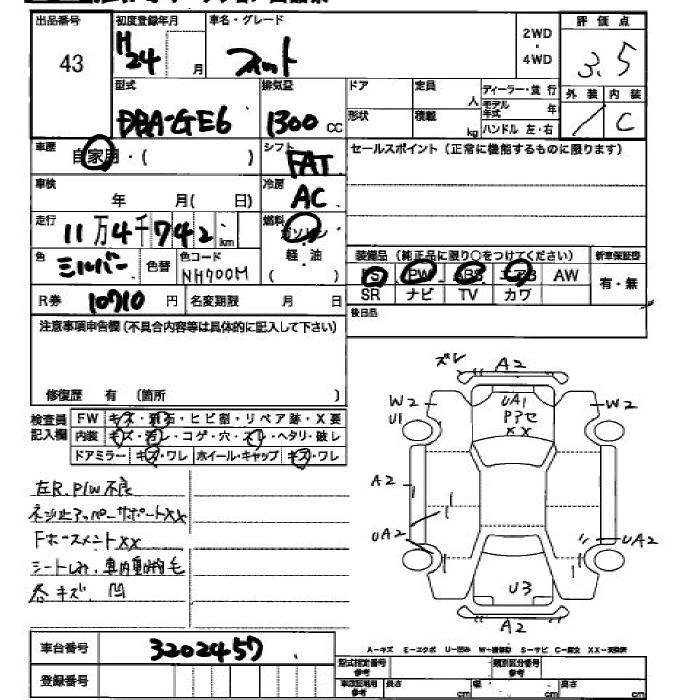 出品番号 初度登録年月 車名・グレード 2WD ・ 4WD 評価点
43 H24 月 フィット 3.5
外装 内装
/ C
型式 排気量 ドア 定員 人 ディーラー・並行
DBA-GE6 1300 cc 形状 積載 kg モデル年式 年
ハンドル 左・右
車歴 自家用・( ) シフト FAT セールスポイント(正常に機能するものに限ります)
車検 年 月( 日) 冷房 AC
走行 11万4千742 km 燃料 ガソリン
軽油
( )
色 シルバー 色替 色コード NH700M
装備品(純正品に限り○をつけてください) 新車保証書
PS PW ABS エアB AW 有・無
SR ナビ TV カワ
R券 10710 円 名変期限 月 日
後日品
注意事項申告欄(不具合内容等は具体的に記入して下さい)
修復歴 有 (箇所 )
検査員記入欄 FW キズ・飛石・ヒビ割・リペア跡・X要
内装 キズ・汚レ・コゲ・穴・スレ・ヘタリ・破レ
ドアミラー キズ・ワレ ホイール・キャップ キズ・ワレ
左R.P/W不良
ネジ止アッパーサポートXX
Fホースメント XX
シートしみ、車内動物毛
各キズ、凹
ズレ A2
UA1
Pアセ
XX
W2 U1
W2
A2
UA2
UA2
U3
A2
車台番号 3202457
A-キズ E-エクボ U-凹み W-補修跡 S-サビ C-腐食 XX-交換済
登録番号
型式指定番号 参考 類別区分番号 参考
車庫証明用 参考 長さ cm 幅 cm 高さ cm